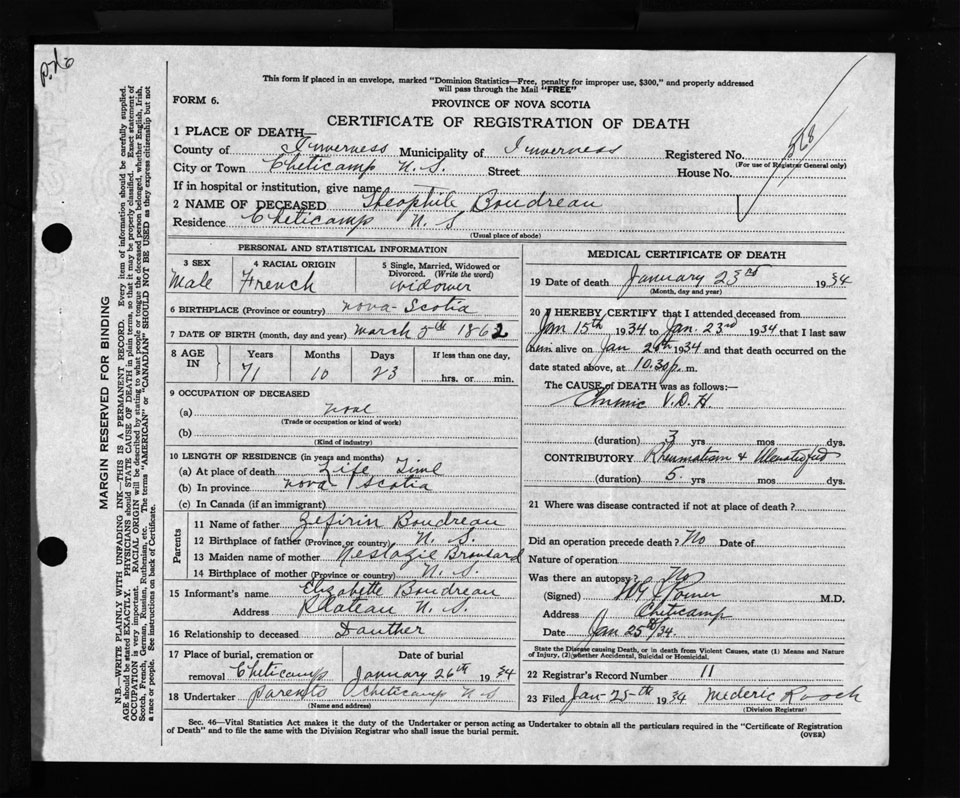 p.do
This form if placed in an envelope, marked "Dominion Statistics—Free, penalty for improper use, $300," and properly addressed
will pass through the Mail "FREE"
FORM 6.
PROVINCE OF NOVA SCOTIA
CERTIFICATE OF REGISTRATION OF DEATH
1 PLACE OF DEATH—
County of Inverness Municipality of Inverness Registered No. 568
(For use of Registrar General only)
City or Town Cheticamp N. S. Street House No.
If in hospital or institution, give name
2 NAME OF DECEASED Theophile Boudreau
Residence Cheticamp N. S
(Usual place of abode)
MARGIN RESERVED FOR BINDING
N.B.—WRITE PLAINLY WITH UNFADING INK—THIS IS A PERMANENT RECORD. Every item of information should be carefully supplied.
AGE should be stated EXACTLY. PHYSICIANS should STATE CAUSE OF DEATH in plain terms, so that it may be properly classified. Exact statement of
OCCUPATION is very important. RACIAL ORIGIN will be described by stating to what people or tongue the deceased person belonged, whether English, Irish,
Scotch, French, German, Russian, Ruthenian, etc. The terms "AMERICAN" or "CANADIAN" SHOULD NOT BE USED as they express citizenship but not
a race or people. See instructions on back of Certificate.
PERSONAL AND STATISTICAL INFORMATION
3 SEX
Male
4 RACIAL ORIGIN
French
5 Single, Married, Widowed or
Divorced. (Write the word)
widower
6 BIRTHPLACE (Province or country) Nova Scotia
7 DATE OF BIRTH (month, day and year) March 5th 1862
8 AGE IN
Years Months Days If less than one day,
71 10 23 hrs. or min.
9 OCCUPATION OF DECEASED
(a)
(Trade or occupation or kind of work)
(b)
(Kind of industry)
10 LENGTH OF RESIDENCE (in years and months)
(a) At place of death Life Time
(b) In province Nova Scotia
(c) In Canada (if an immigrant)
Parents
11 Name of father Zefirin Boudreau
12 Birthplace of father (Province or country) N. S.
13 Maiden name of mother Nestazie Brousard
14 Birthplace of mother (Province or country) N. S.
15 Informant's name Elizabette Boudreau
Address Plateau N. S.
16 Relationship to deceased Dauther
17 Place of burial, cremation or removal Cheticamp
Date of burial
January 26th 1934
18 Undertaker parents Cheticamp N S
(Name and address)
MEDICAL CERTIFICATE OF DEATH
19 Date of death January 23rd 1934
(Month, day and year)
20 I HEREBY CERTIFY that I attended deceased from
Jan 15th 1934 to Jan. 23rd 1934 that I last saw
him alive on Jan 1934 and that death occurred on the
date stated above, at 10.30 p. m.
The CAUSE of DEATH was as follows:—
V. D. H.
(duration) 3 yrs mos dys.
CONTRIBUTORY Rheumatism &
(duration) 5 yrs mos dys.
21 Where was disease contracted if not at place of death?
Did an operation precede death? No Date of
Nature of operation
Was there an autopsy? No
(Signed) M.D.
Address Cheticamp
Date Jan 25th/34.
State the Disease causing Death, or in death from Violent Causes, state (1) Means and Nature
of Injury, (2) whether Accidental, Suicidal or Homicidal.
22 Registrar's Record Number 11
23 Filed Jan 25-th 1934 Mederic Roach
(Division Registrar)
Sec. 46—Vital Statistics Act makes it the duty of the Undertaker or person acting as Undertaker to obtain all the particulars required in the "Certificate of Registration
of Death" and to file the same with the Division Registrar who shall issue the burial permit.
(OVER)